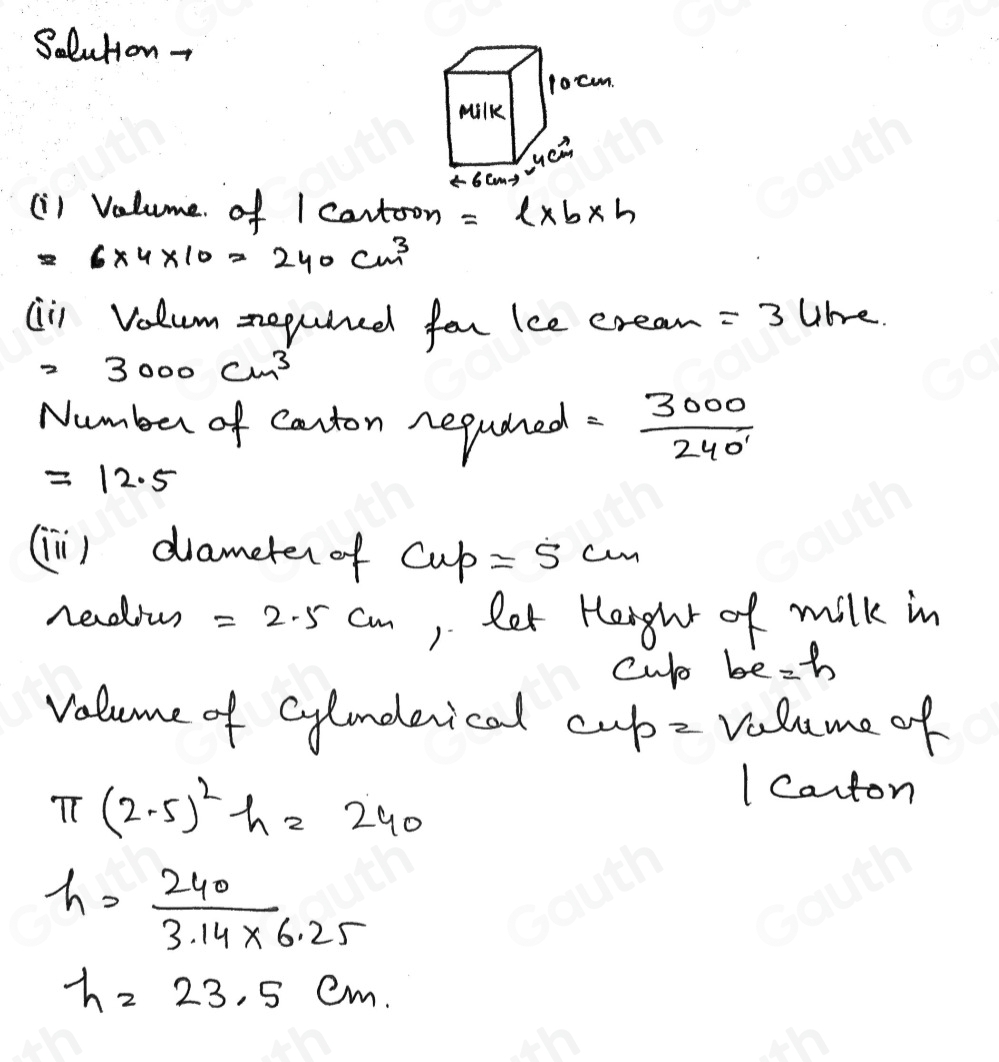 Solution →
10 cm.
Milk
4cm →
← 6 cm →
(i) Volume. of 1 Cartoon = l x b x h
= 6 x 4 x 10 = 240 cm³
(ii) Volum required for Ice crean = 3 litre.
= 3000 cm³
Number of Carton required = 3000
240
= 12.5
(iii) diameter of Cup = 5 cm
readius = 2.5 cm, let Height of milk in
Cup be = h
Volume of Cylinderical cup = Volume of
1 Carton
π (2.5)² h = 240
h = 240
3.14 x 6.25
h = 23.5 Cm.
Gauth